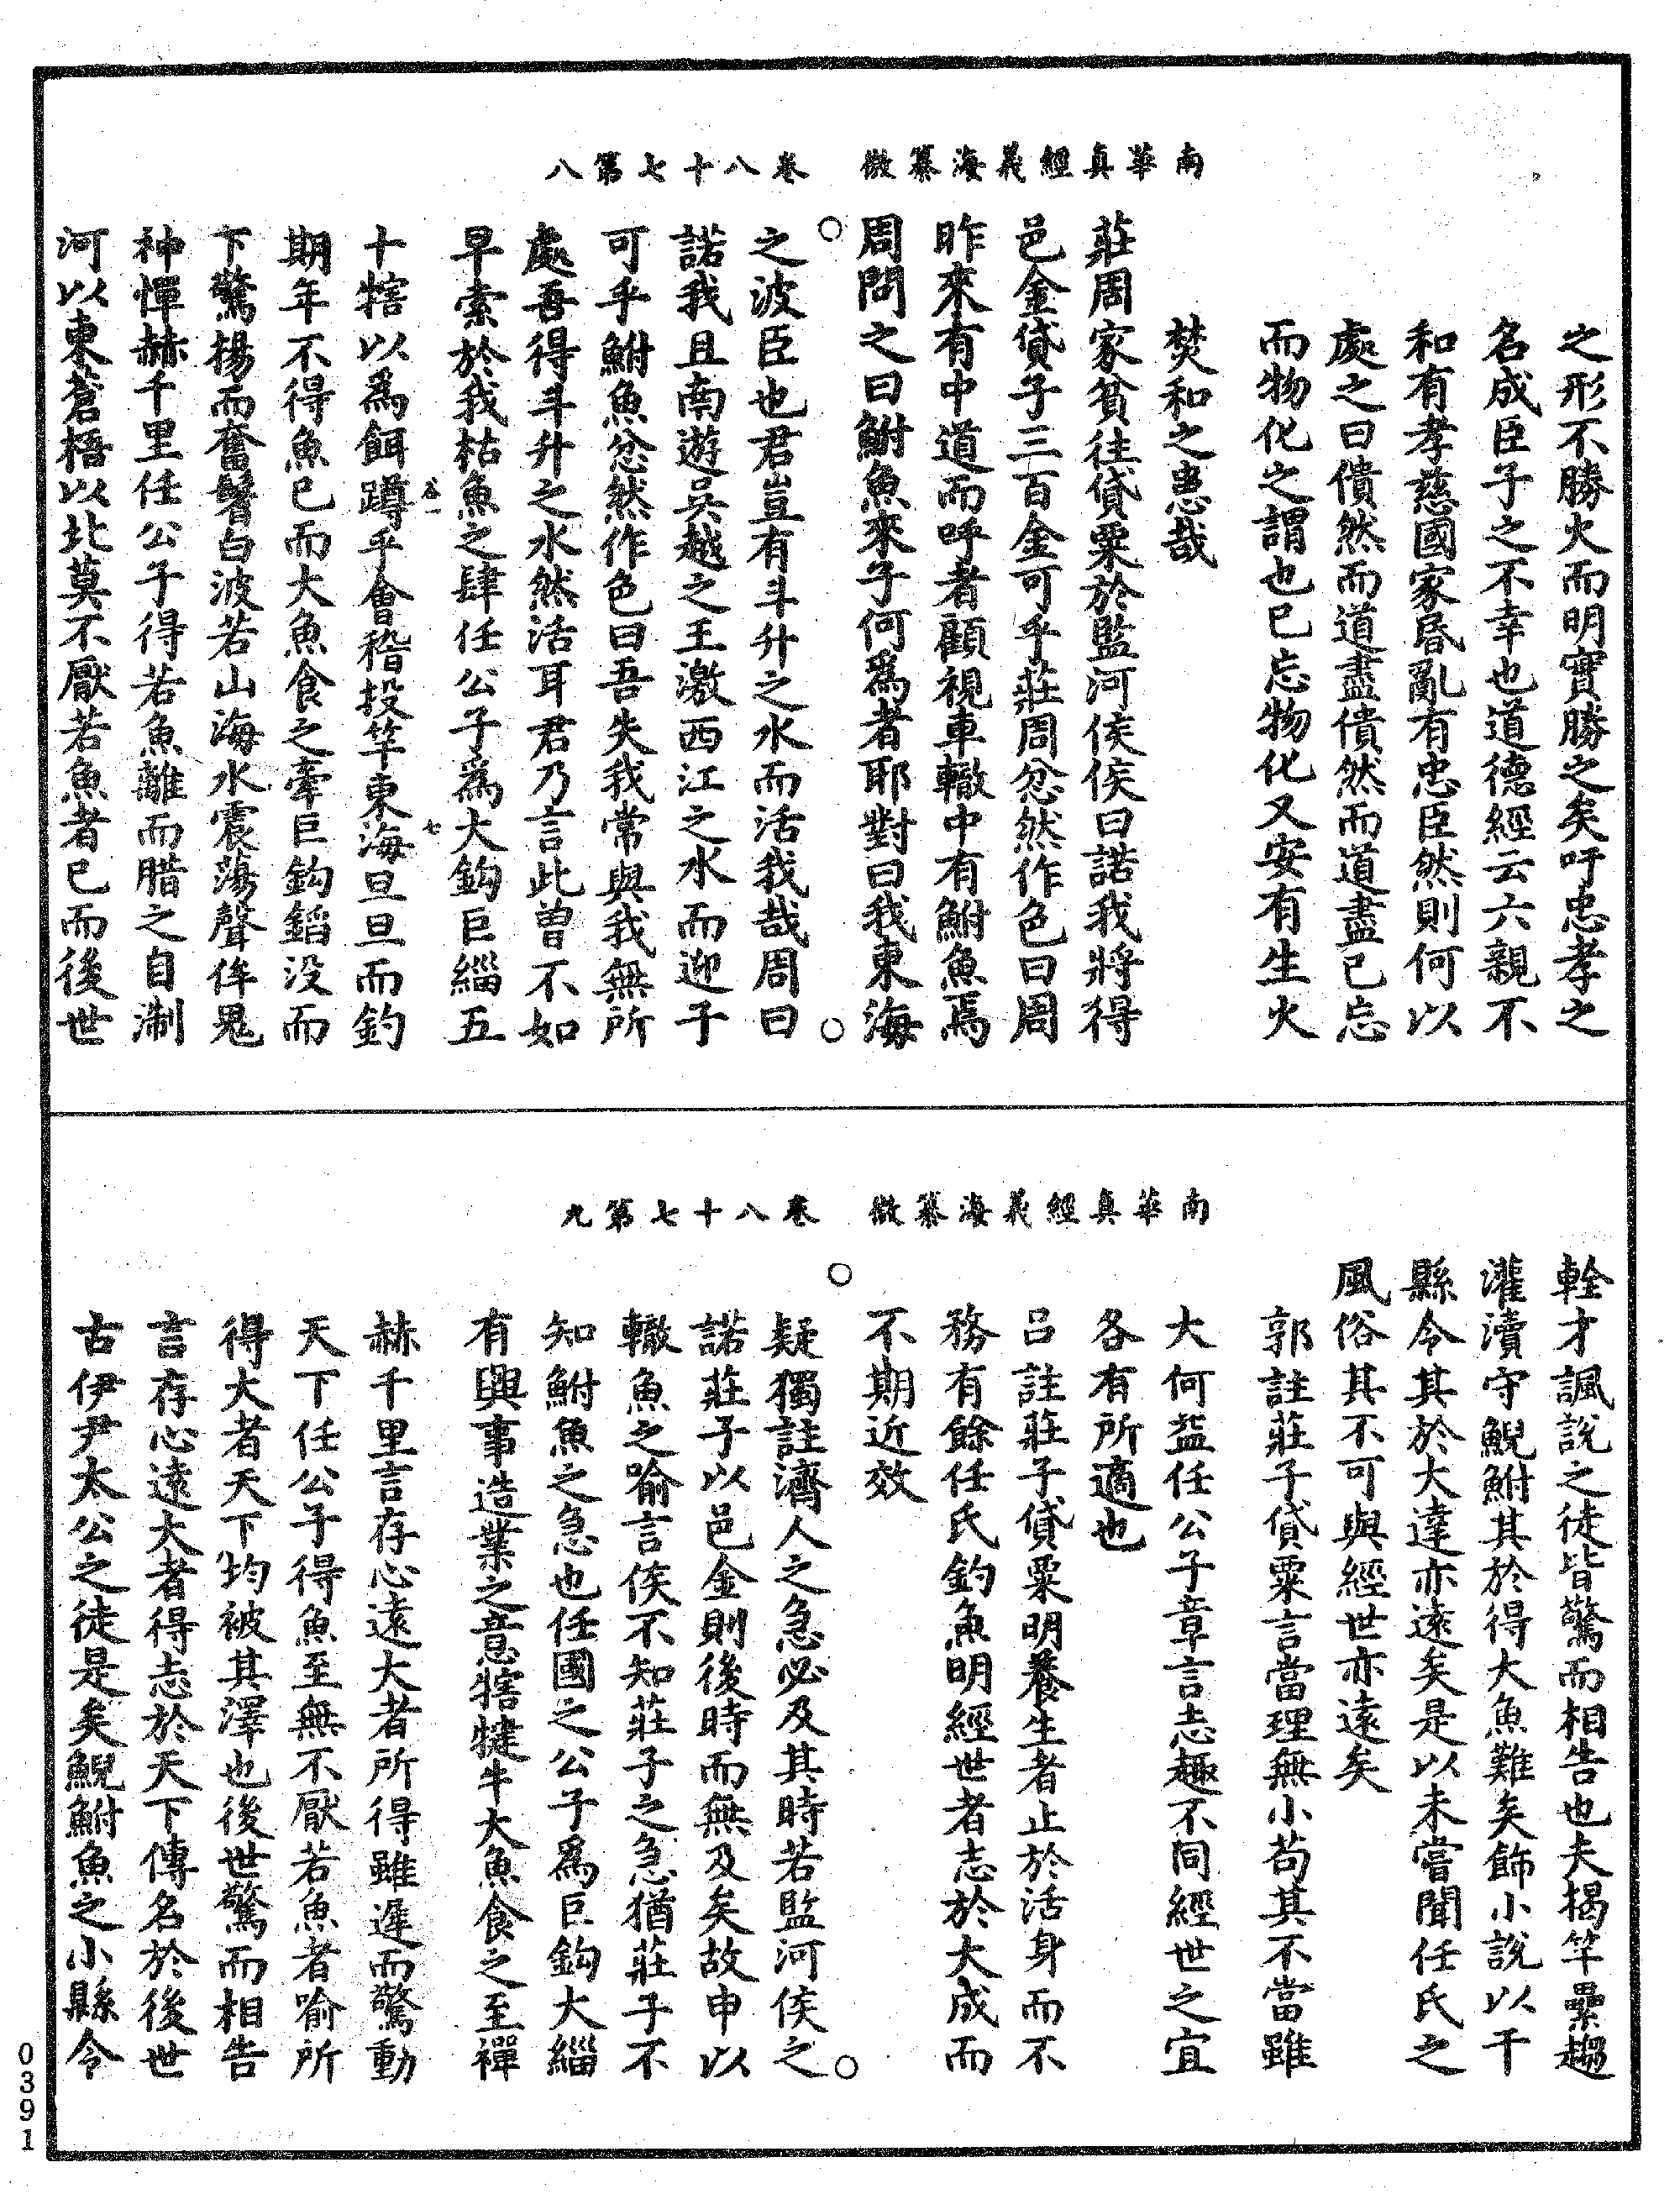 南華真經義海纂微　卷八十七第八
之形不勝火而明實勝之矣吁忠孝之
名成臣子之不幸也道德經云六親不
和有孝慈國家昬亂有忠臣然則何以
處之曰僓然而道盡僓然而道盡已忘
而物化之謂也已忘物化又安有生火
焚和之患哉
莊周家貧往貸粟於監河侯侯曰諾我將得
邑金貸子三百金可乎莊周忿然作色曰周
昨來有中道而呼者顧視車轍中有鮒魚焉
周問之曰鮒魚來子何爲者耶對曰我東海
之波臣也君豈有斗升之水而活我哉周曰
諾我且南遊吳越之王激西江之水而迎子
可乎鮒魚忿然作色曰吾失我常與我無所
處吾得斗升之水然活耳君乃言此曾不如
早索於我枯魚之肆任公子爲大鈎巨緇五
十犗以爲餌蹲乎會稽投竿東海旦旦而釣
期年不得魚已而大魚食之牽巨鈎錎没而
下驚揚而奮鬐白波若山海水震蕩聲侔鬼
神憚赫千里任公子得若魚離而腊之自淛
河以東蒼梧以北莫不厭若魚者已而後世
南華真經義海纂微　卷八十七第九
輇才諷說之徒皆驚而相告也夫揭竿纍趨
灌瀆守鯢鮒其於得大魚難矣飾小說以干
縣令其於大達亦遠矣是以未嘗聞任氏之
風俗其不可與經世亦遠矣
郭註莊子貸粟言當理無小苟其不當雖
大何益任公子章言志趣不同經世之宜
各有所適也
呂註莊子貸粟明養生者止於活身而不
務有餘任氏釣魚明經世者志於大成而
不期近效
疑獨註濟人之急必及其時若監河侯之
諾莊子以邑金則後時而無及矣故申以
轍魚之喻言侯不知莊子之急猶莊子不
知鮒魚之急也任國之公子爲巨鈎大緇
有興事造業之意犗犍牛大魚食之至禪
赫千里言存心遠大者所得雖遲而驚動
天下任公子得魚至無不厭若魚者喻所
得大者天下均被其澤也後世驚而相告
言存心遠大者得志於天下傳名於後世
古伊尹太公之徒是矣鯢鮒魚之小縣令
0391